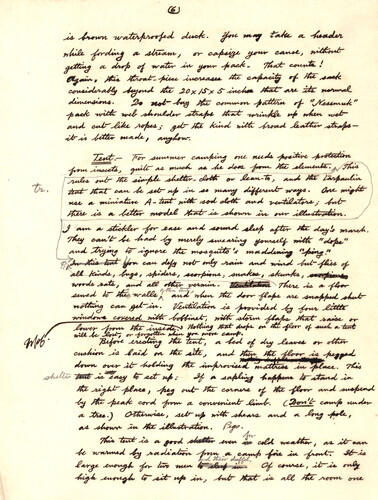 (6)
is brown waterproofed duck. You may take a header
while fording a stream, or capsize your canoe, without
getting a drop of water in your pack. That counts!
Again, this throat-piece increases the capacity of the sack
considerably beyond the 20x15x5 inches that are its normal
dimensions. Do not buy the common pattern of "Nessmuk"
pack with web shoulder straps that wrinkle up when wet
and cut like ropes; get the kind with broad leather straps—
it is better made, anyhow.
Tent.- For summer camping one needs positive protection
from insects, quite as much as he does from the elements. This
rules out the simple shelter cloth or lean-to, and the tarpaulin
tr.
tent that can be set up in so many different ways. One might
use a miniature A-tent with sod cloth and ventilators; but
there is a better model that is shown in our illustration.
I am a stickler for ease and sound sleep after the day's march.
They can't be had by merely smearing yourself with "dope"
and trying to ignore the mosquito's maddening "ping."
In this tent you can defy not only rain and wind but flies of
all kinds, bugs, spiders, scorpions, snakes, skunks,
wood rats, and all other vermin. There is a floor
sewed to the walls, and when the door flaps are snapped shut
nothing can get in. Ventilation is provided by four little
windows covered with bobbinet, with storm flaps that raise or
lower from the inside. Nothing that drops on the floor of such a tent
will be lost or forgotten when you move camp.
Before erecting the tent, a bed of dry leaves or other
cushion is laid on the site, and then the floor is pegged
down over it holding the improvised mattress in place. This
shelter tent is easy to set up: If a sapling happens to stand in
the right place, peg out the corners of the floor and suspend
by the peak cord from a convenient limb. (Don't camp under
a tree.) Otherwise, set up with shears and a long pole,
as shown in the illustration.
This tent is a good shelter even for cold weather, as it can
be warmed by radiation from a camp fire in front. It is
large enough for two men and their duffel to sleep in. Of course, it is only
high enough to sit up in, but that is all the room one